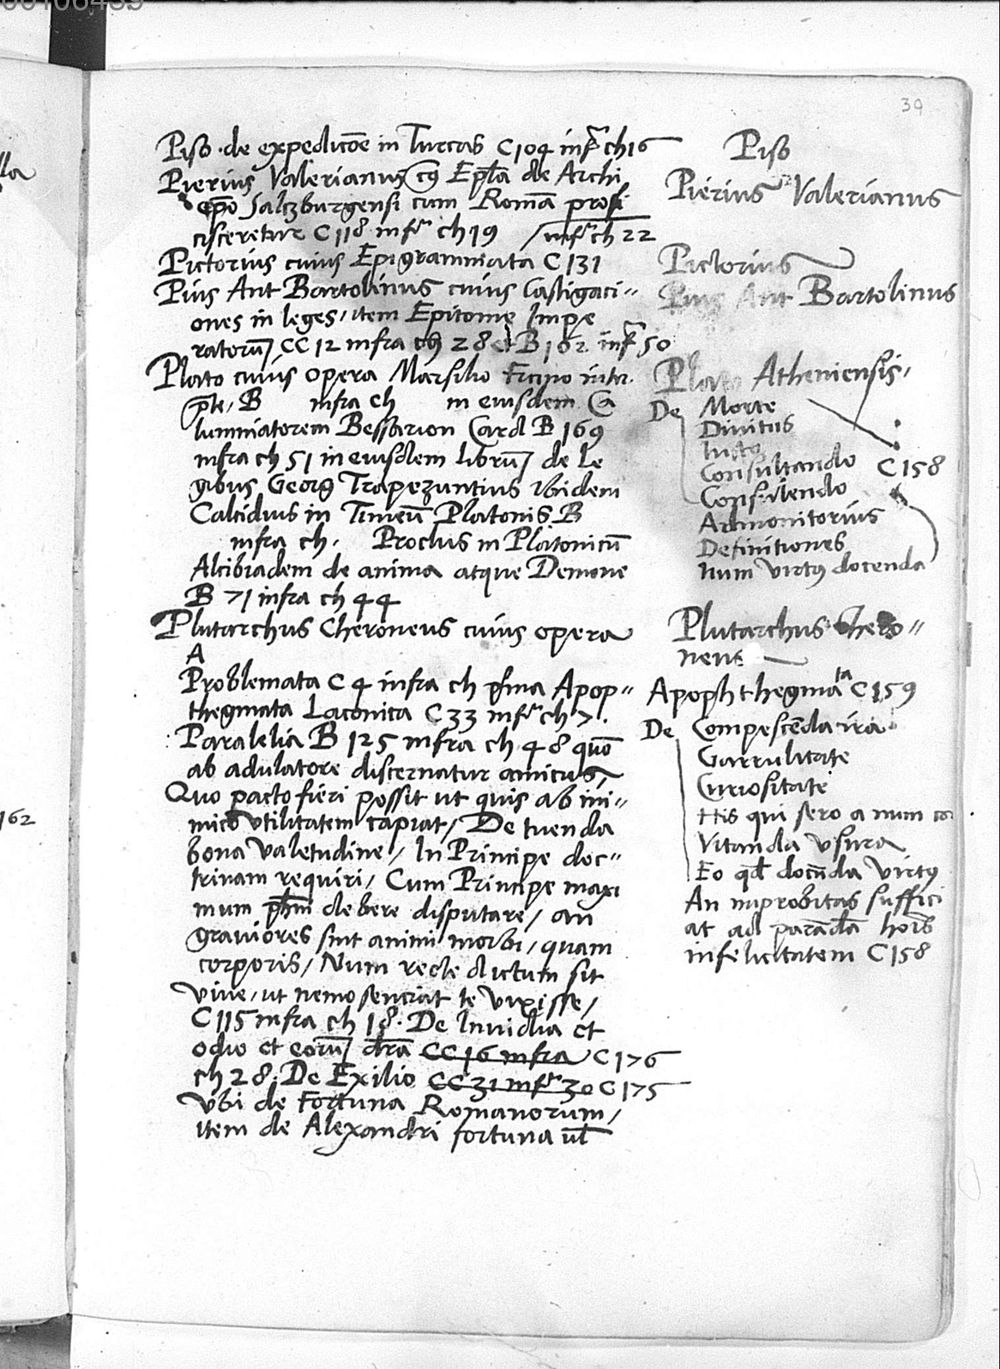 39
Piso de expedicōe in Turcas C104 infr̄ ch16
Pierius Valerianus cuius Ep̄la de Archi
ep̄o Saltzburgensi cum Romā profi
cisceretur C118 infr ch19 / infr ch 22
Pictorius cuius Epigrammata C131
Pius Ant Bartolinus cuius Castigaci=
ones in leges, item Epitome Impe
ratorum CC12 infra ch 28 et B162 infr̄ 50
Plato cuius opera Marsilio Ficino inter
p̄te, B infra ch in eiusdem Ca
lumniatorem Bessarion Card B 169
infra ch 51 in eiusdem librum de Le
gibus Georg Trapezuntius ibidem
Calcidius in Timeū Platonis B
infra ch. Proclus in Platonicū
Alcibiadem de anima atque Demone
B 71 infra ch 44
Plutarchus Cheroneus cuius opera
A
Problemata C 4 infra ch prima Apop=
thegmata Laconica C33 infr ch 7.
Paralelia B 125 infra ch 48 quō
ab adulatore discernatur amicus
Quo pacto fieri possit ut quis ab ini=
mico utilitatem capiat, De tuenda
bona Valetudine, In Principe doc=
trinam requiri, Cum Principe maxi
mum ph̄m debere disputare, an
graviores sint animi morbi, quam
corporis, Num recte dictum sit
Vive, ut nemo senciat te Vixisse,
C115 infra ch 18. De Invidia et
odio et eorum dr̄a CC16 infra C176
ch 28. De Exilio CC31 infr 30 C175
Ubi de Fortuna Romanorum,
item de Alexandri fortuna ul̄
Piso
Pierius Valerianus
Pictorius
Pius Ant Bartolinus
Plato Atheniensis,
De Morte
Divitiis
Iusto
Consultando C158
Consulendo
Admonitorius
Definitiones
Num virtus docenda
Plutarchus Chero=
neus
Apophthegmata C159
De Compescēda ira
Garrulitate
Curiositate
His qui sero a num co
Vitanda Usura
Eo qd docēda Virtus
An improbitas suffici
at ad parādā hōis
infelicitatem C158
162